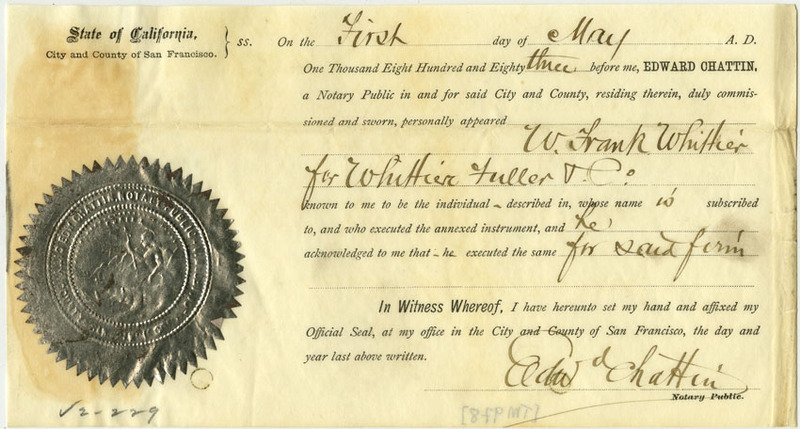 State of California,
City and County of San Francisco. } ss.
On the First day of May A. D.
One Thousand Eight Hundred and Eighty three before me, EDWARD CHATTIN,
a Notary Public in and for said City and County, residing therein, duly commis-
sioned and sworn, personally appeared
W. Frank Whittier
for Whittier Fuller & Co.
known to me to be the individual - described in, whose name is subscribed
to, and who executed the annexed instrument, and he
acknowledged to me that - he executed the same for said firm
In Witness Whereof, I have hereunto set my hand and affixed my
Official Seal, at my office in the City and County of San Francisco, the day and
year last above written.
Edwd Chattin
Notary Public.
√2-229
[85PMT]